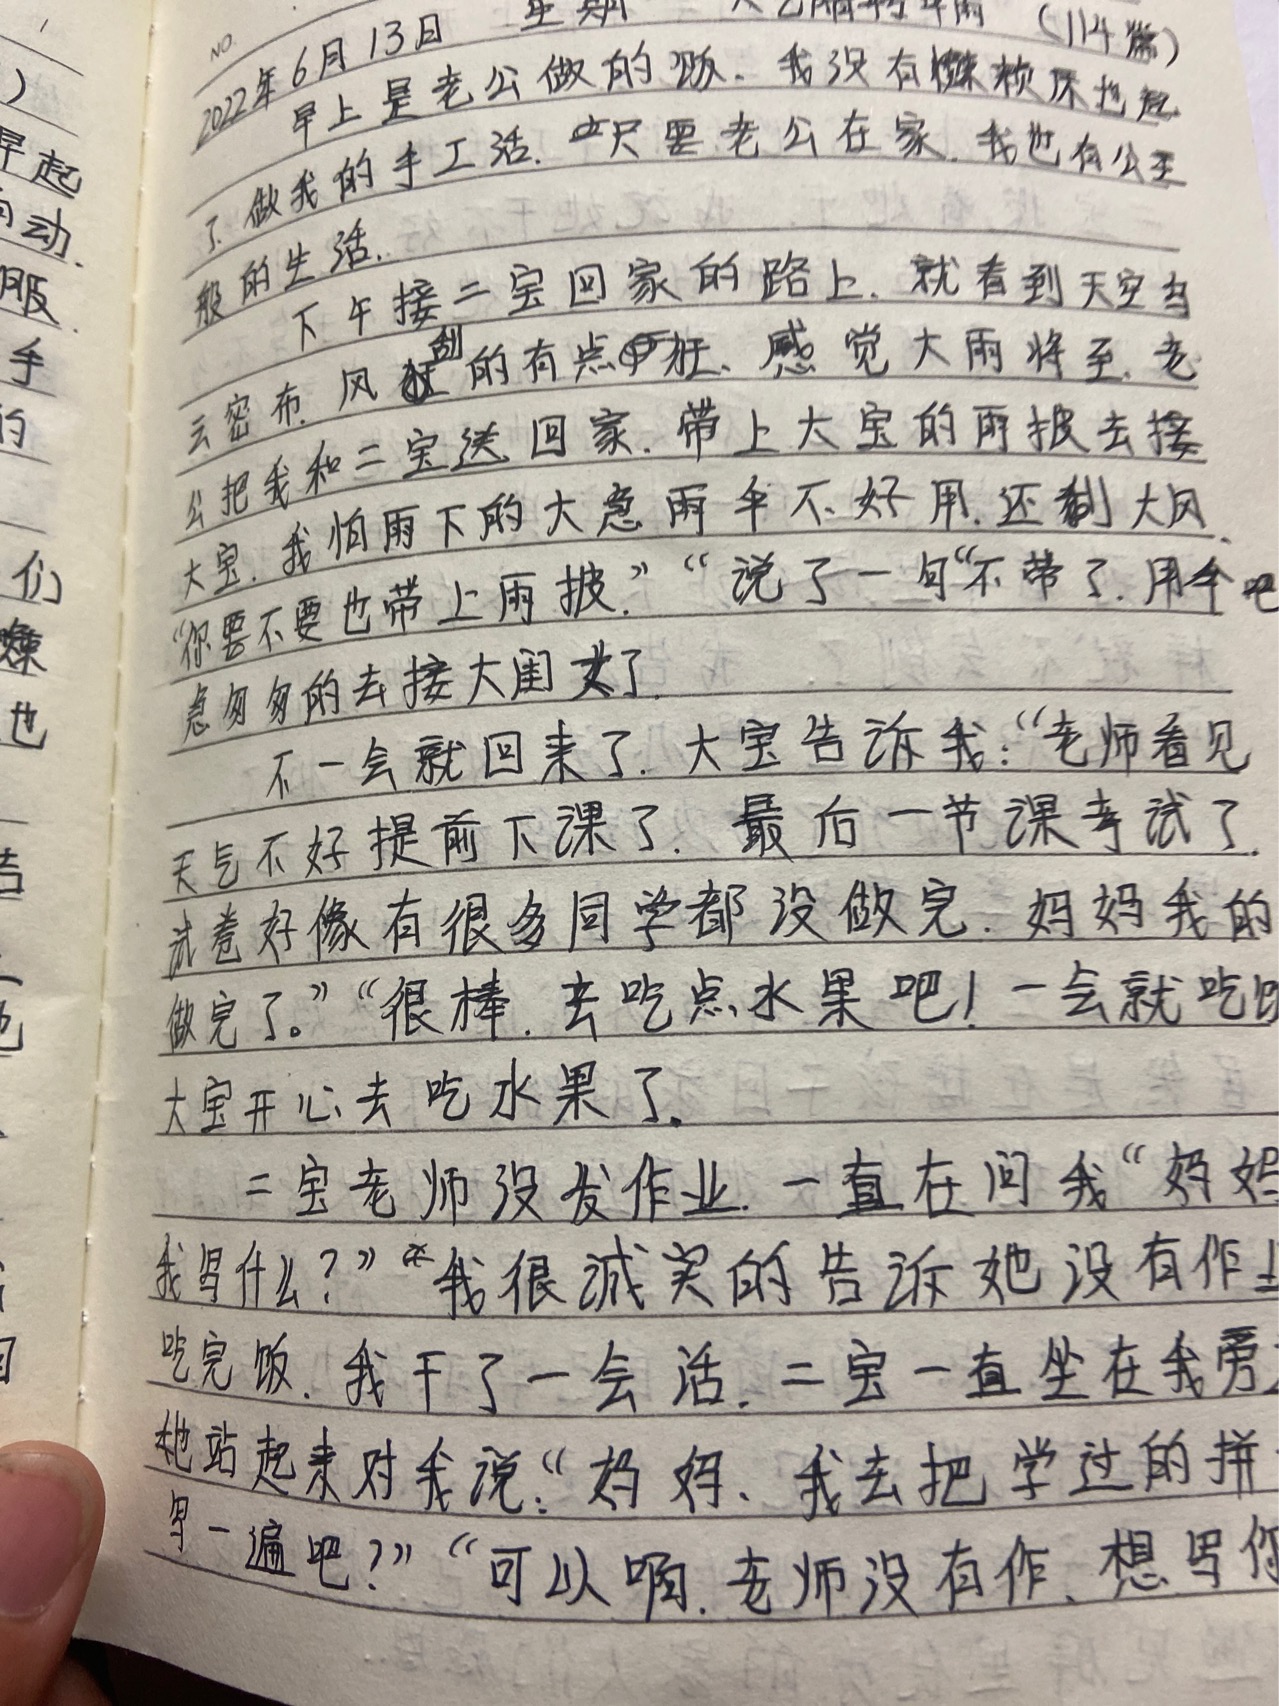 2022年6月13日 星期一 (114篇)
早上是老公做的饭.我没有 床也起
了.做我的手工活.只要老公在家.我也有公主
般的生活.
下午接二宝回家的路上.就看到天空乌
云密布.风刮的有点狂、感觉大雨将至.老
公把我和二宝送回家.带上大宝的雨披去接
大宝.我怕雨下的大急雨伞不好用.还刮大风.
“你要不要也带上雨披.”“说了一句“不带了.用伞吧
急匆匆的去接大闺女了.
不一会就回来了.大宝告诉我:“老师看见
天气不好提前下课了.最后一节课考试了.
试卷好像有很多同学都没做完.妈妈我的
做完了。”“很棒.去吃点水果吧!一会就吃饭
大宝开心去吃水果了.
二宝老师没发作业.一直在问我“妈妈
我写什么?”我很诚实的告诉她没有作业
吃完饭.我干了一会活.二宝一直坐在我旁
她站起来对我说:“妈妈、我去把学过的拼
写一遍吧?”“可以啊.老师没有作、想写你
早起
动.
服.
手
的
们
也